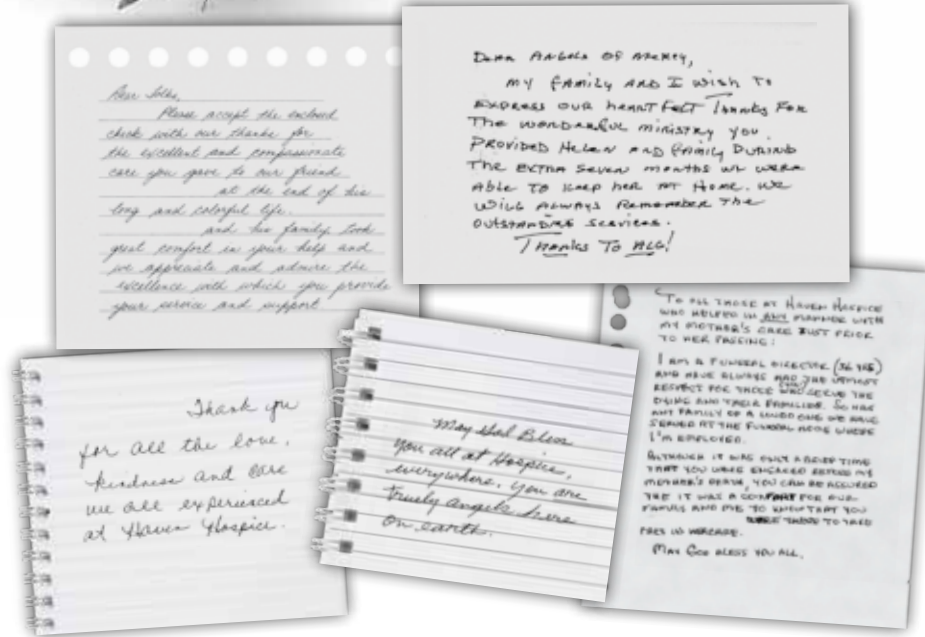 Dear Folks,
Please accept the enclosed
check with our thanks for
the excellent and compassionate
care you gave to our friend
at the end of his
long and colorful life.
and his family took
great comfort in your help and
we appreciate and admire the
excellence with which you provide
your service and support
Dear Angels of Mercy,
My family and I wish to
express our heartfelt thanks for
the wonderful ministry you
provided Helen and family during
the extra seven months we were
able to keep her at home. We
will always remember the
outstanding services.
Thanks to all!
Thank you
for all the love,
kindness and care
we all experienced
at Haven Hospice.
May God Bless
you all at Hospice,
everywhere, you are
truely angels here
on earth.
To all those at Haven Hospice
who helped in any manner with
my mother's care just prior
to her passing:
I am a funeral director (36 yrs)
and have always had the utmost
respect for those who serve the
dying and their families. So has
any family of a loved one we have
served at the funeral home where
I'm employed.
Although it was only a brief time
that you were engaged before my
mother's death, you can be assured
it was a comfort for our
family and me to know that you
were there to
May God bless you all.